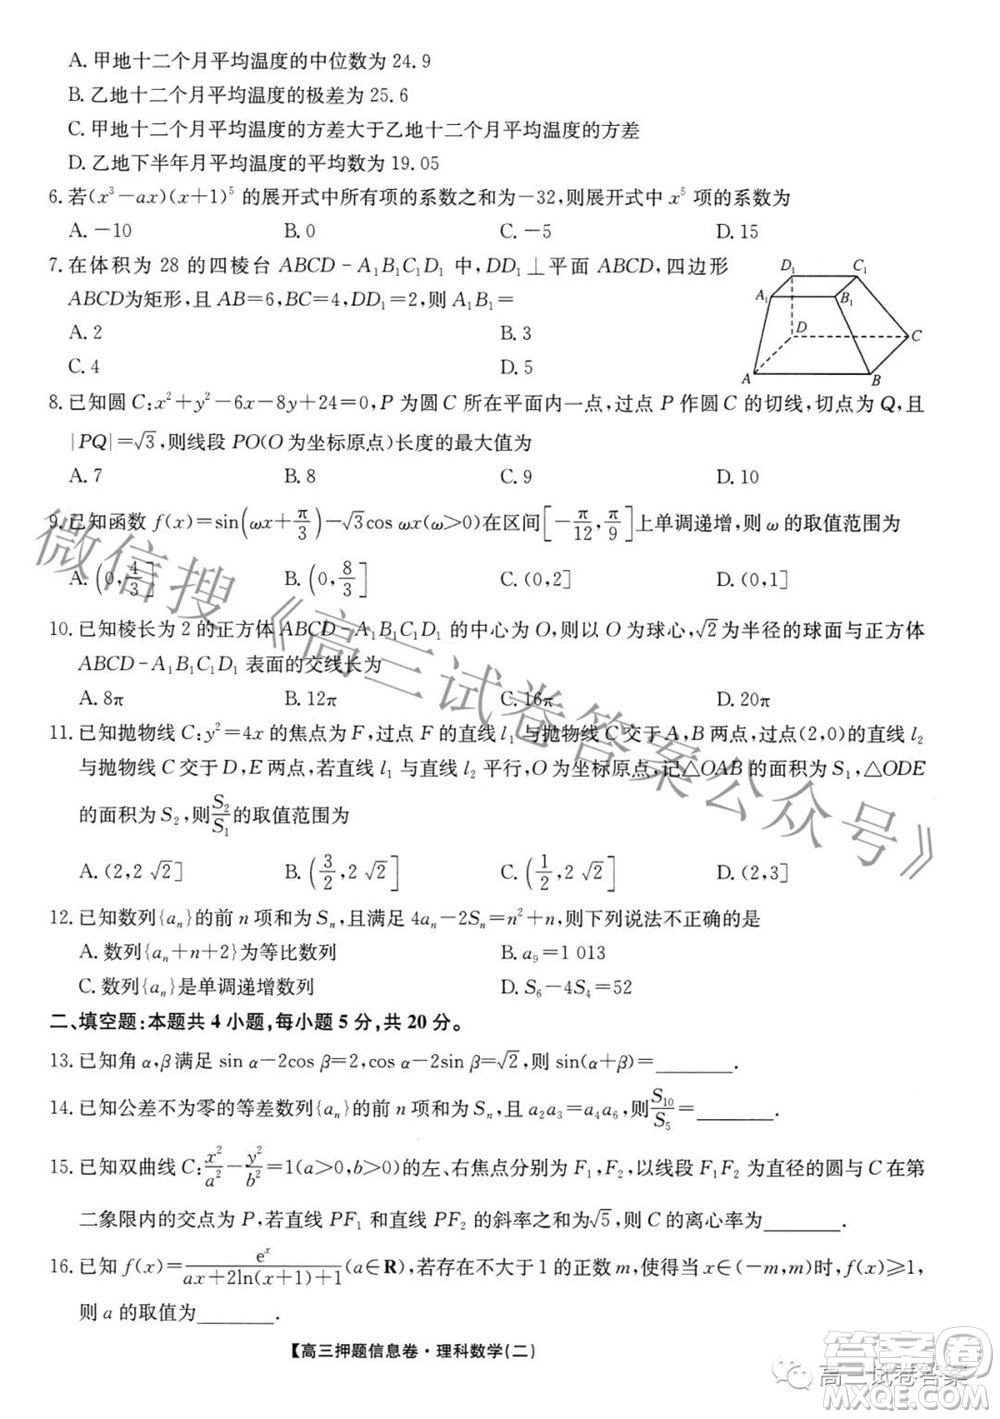 A. 甲地十二个月平均温度的中位数为 24.9
B. 乙地十二个月平均温度的极差为 25.6
C. 甲地十二个月平均温度的方差大于乙地十二个月平均温度的方差
D. 乙地下半年月平均温度的平均数为 19.05
6. 若(x³-ax)(x+1)⁵ 的展开式中所有项的系数之和为-32,则展开式中 x⁵ 项的系数为
A. -10 B. 0 C. -5 D. 15
7. 在体积为 28 的四棱台 ABCD-A₁B₁C₁D₁ 中,DD₁⊥平面 ABCD,四边形
ABCD为矩形,且 AB=6,BC=4,DD₁=2,则 A₁B₁=
A. 2 B. 3
C. 4 D. 5
D₁ C₁
A₁ B₁
D C
A B
8. 已知圆 C:x²+y²-6x-8y+24=0,P 为圆 C 所在平面内一点,过点 P 作圆 C 的切线,切点为 Q,且
|PQ|=√3,则线段 PO(O 为坐标原点)长度的最大值为
A. 7 B. 8 C. 9 D. 10
9. 已知函数 f(x)=sin(ωx+π/3)-√3cos ωx(ω>0)在区间[-π/12,π/9]上单调递增,则 ω 的取值范围为
A. (0,4/3] B. (0,8/3] C. (0,2] D. (0,1]
10. 已知棱长为 2 的正方体 ABCD-A₁B₁C₁D₁ 的中心为 O,则以 O 为球心,√2为半径的球面与正方体
ABCD-A₁B₁C₁D₁ 表面的交线长为
A. 8π B. 12π C. 16π D. 20π
11. 已知抛物线 C:y²=4x 的焦点为 F,过点 F 的直线 l₁ 与抛物线 C 交于 A,B 两点,过点(2,0)的直线 l₂
与抛物线 C 交于 D,E 两点,若直线 l₁ 与直线 l₂ 平行,O 为坐标原点,记△OAB 的面积为 S₁,△ODE
的面积为 S₂,则S₂/S₁的取值范围为
A. (2,2√2] B. (3/2,2√2] C. (1/2,2√2] D. (2,3]
12. 已知数列{aₙ}的前 n 项和为 Sₙ,且满足 4aₙ-2Sₙ=n²+n,则下列说法不正确的是
A. 数列{aₙ+n+2}为等比数列 B. a₉=1 013
C. 数列{aₙ}是单调递增数列 D. S₆-4S₄=52
二、填空题:本题共 4 小题,每小题 5 分,共 20 分。
13. 已知角 α,β满足 sin α-2cos β=2,cos α-2sin β=√2,则 sin(α+β)=________.
14. 已知公差不为零的等差数列{aₙ}的前 n 项和为 Sₙ,且 a₂a₃=a₄a₆,则S₁₀/S₅=________.
15. 已知双曲线 C:x²/a²-y²/b²=1(a>0,b>0)的左、右焦点分别为 F₁,F₂,以线段 F₁F₂ 为直径的圆与 C 在第
二象限内的交点为 P,若直线 PF₁ 和直线 PF₂ 的斜率之和为√5,则 C 的离心率为________.
16. 已知 f(x)=eˣ/(ax+2ln(x+1)+1)(a∈R),若存在不大于 1 的正数 m,使得当 x∈(-m,m)时,f(x)≥1,
则 a 的取值为________.
【高三押题信息卷·理科数学(二)
微信搜《高三试卷答案公众号》
高三试卷答案
答案圈
MXQE.COM